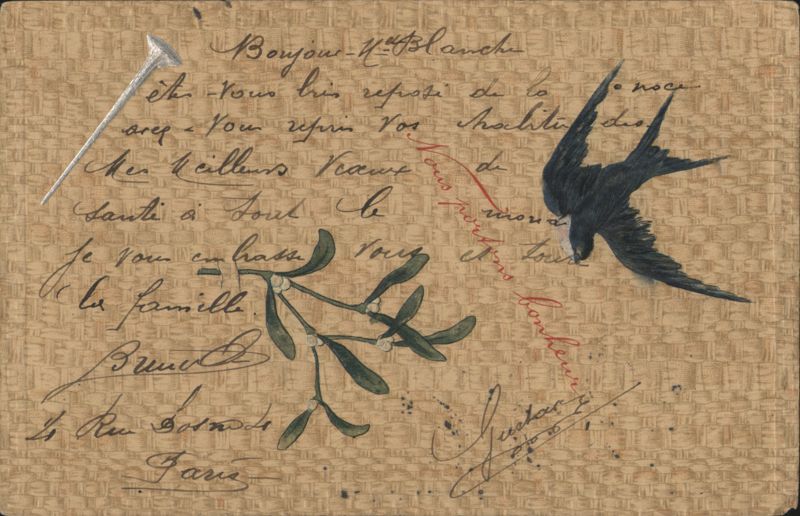 Bonjour - Mlle Blanche
êtes - vous bris reposé de la noce
avez - vous repris vos habitudes
Mes Meilleurs Veaux de
santé à tout le monde
Je vous embrasse vous et toute
la famille.
Nous portons bonheur
Gustave
Rue
Paris